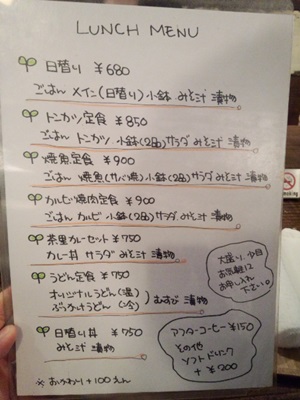 LUNCH MENU
日替り ¥680
ごはん メイン(日替り)小鉢 みそ汁 漬物
トンカツ定食 ¥850
ごはん トンカツ 小鉢(2品)サラダ みそ汁 漬物
焼魚定食 ¥900
ごはん 焼魚(サバ焼)小鉢(2品)サラダ みそ汁 漬物
カルビ焼肉定食 ¥900
ごはん カルビ 小鉢(2品)サラダ みそ汁 漬物
茶里カレーセット ¥750
カレー丼 サラダ みそ汁 漬物
うどん定食 ¥750
オリジナルうどん(温)
ぶっかけうどん(冷)
むすび 漬物
大盛り、小目
お気軽に
お申し入れ
下さい。
日替り丼 ¥750
みそ汁 漬物
アフターコーヒー ¥150
その他
ソフトドリンク
+ ¥200
※おかわり+100えん